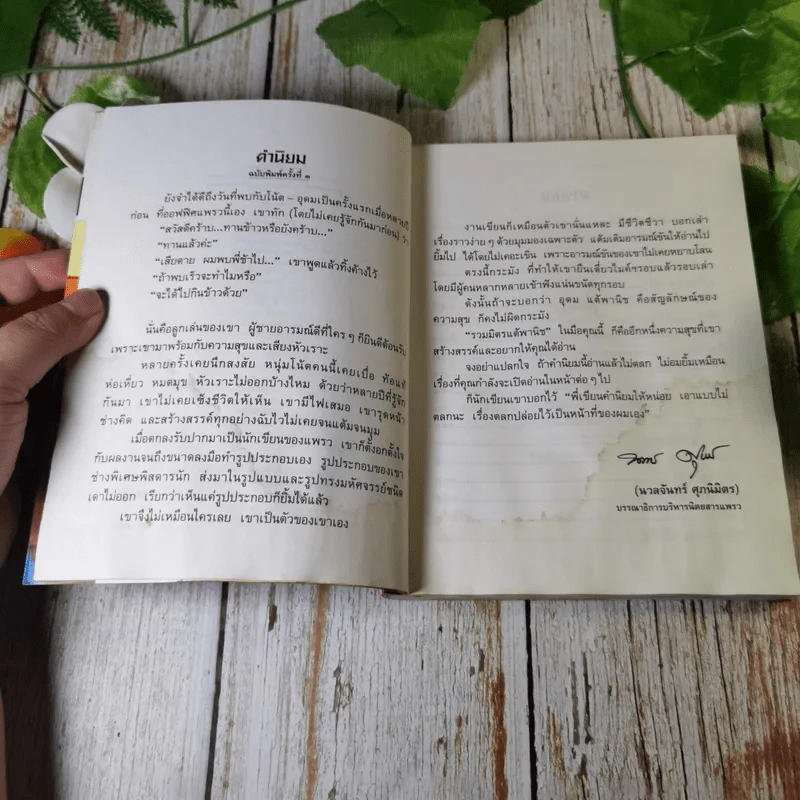 คำนิยม
ฉบับพิมพ์ครั้งที่ ๑
ยังจำได้ดีถึงวันที่พบกับโน้ต – อุดมเป็นครั้งแรกเมื่อหลายปี
ก่อน ที่ออฟฟิศแพรวนี้เอง เขาทัก (โดยไม่เคยรู้จักกันมาก่อน) ว่า
“สวัสดีคร้าบ...ทานข้าวหรือยังคร้าบ...”
“ทานแล้วค่ะ”
“เสียดาย ผมพบพี่ช้าไป...” เขาพูดแล้วทิ้งค้างไว้
“ถ้าพบเร็วจะทำไมหรือ”
“จะได้ไปกินข้าวด้วย”
นั่นคือลูกเล่นของเขา ผู้ชายอารมณ์ดีที่ใครๆ ก็ยินดีต้อนรับ
เพราะเขามาพร้อมกับความสุขและเสียงหัวเราะ
หลายครั้งเคยนึกสงสัย หนุ่มโน้ตคนนี้เคยเบื่อ ท้อแท้
ห่อเหี่ยว หมดมุข หัวเราะไม่ออกบ้างไหม ด้วยว่าหลายปีที่รู้จัก
กันมา เขาไม่เคยเซ็งชีวิตให้เห็น เขามีไฟเสมอ เขารุดหน้า
ช่างคิด และสร้างสรรค์ทุกอย่างฉับไวไม่เคยจนแต้มจนมุม
เมื่อตกลงรับปากมาเป็นนักเขียนของแพรว เขาก็ตั้งอกตั้งใจ
กับผลงานจนถึงขนาดลงมือทำรูปประกอบเอง รูปประกอบของเขา
ช่างพิเศษพิสดารนัก ส่งมาในรูปแบบและรูปทรงมหัศจรรย์ชนิด
เดาไม่ออก เรียกว่าเห็นแค่รูปประกอบก็ยิ้มได้แล้ว
เขาจึงไม่เหมือนใครเลย เขาเป็นตัวของเขาเอง
งานเขียนก็เหมือนตัวเขานั่นแหละ มีชีวิตชีวา บอกเล่า
เรื่องราวง่ายๆ ด้วยมุมมองเฉพาะตัว แต้มเติมอารมณ์ขันให้อ่านไป
ยิ้มไป ได้โดยไม่เคอะเขิน เพราะอารมณ์ขันของเขาไม่เคยหยาบโลน
ตรงนี้กระมัง ที่ทำให้เขายืนเดี่ยวไมค์ฯรอบแล้วรอบเล่า
โดยมีผู้คนหลากหลายเข้าฟังแน่นขนัดทุกรอบ
ดังนั้นถ้าจะบอกว่า อุดม แต้พานิช คือสัญลักษณ์ของ
ความสุข ก็คงไม่ผิดกระมัง
“รวมมิตรแต้พานิช” ในมือคุณนี้ ก็คืออีกหนึ่งความสุขที่เขา
สร้างสรรค์และอยากให้คุณได้อ่าน
จงอย่าแปลกใจ ถ้าคำนิยมนี้อ่านแล้วไม่ตลก ไม่อมยิ้มเหมือน
เรื่องที่คุณกำลังจะเปิดอ่านในหน้าต่อๆ ไป
ก็นักเขียนเขาบอกไว้ “พี่เขียนคำนิยมให้หน่อย เอาแบบไม่
ตลกนะ เรื่องตลกปล่อยไว้เป็นหน้าที่ของผมเอง”
(นวลจันทร์ ศุภนิมิตร)
บรรณาธิการบริหารนิตยสารแพรว